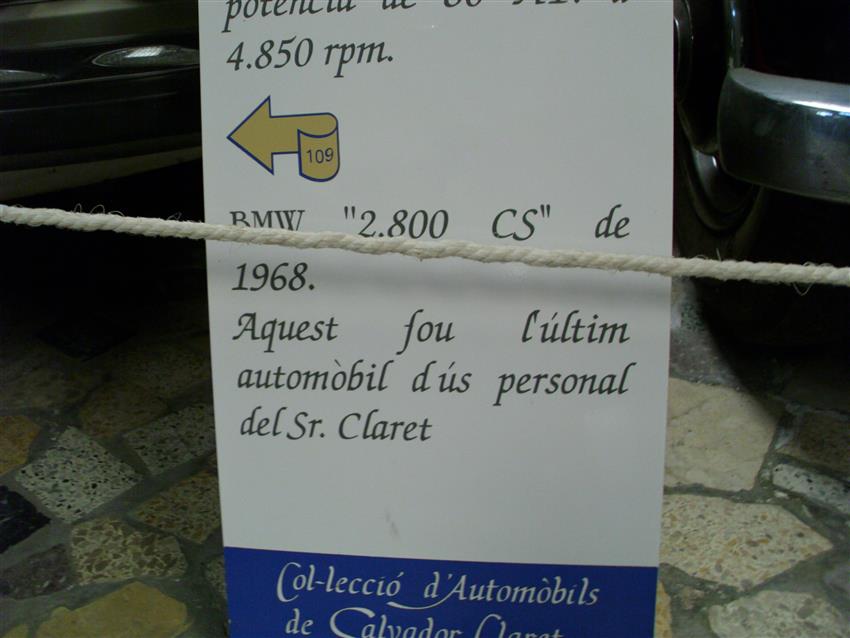 potència de 80 H.P. a
4.850 rpm.
109
BMW "2.800 CS" de
1968.
Aquest fou l'últim
automòbil d'ús personal
del Sr. Claret
Col-lecció d'Automòbils
de Salvador Claret